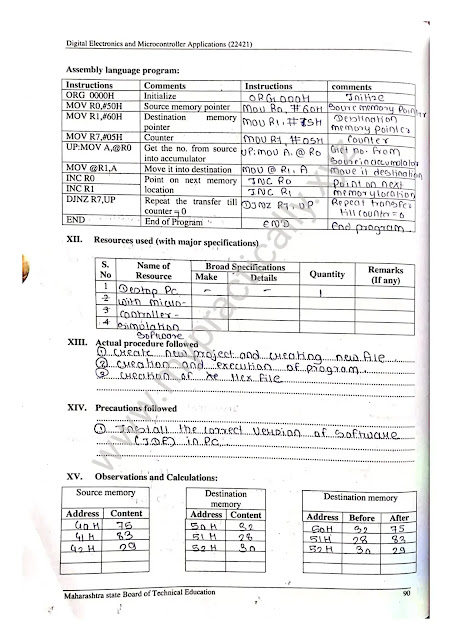 Digital Electronics and Microcontroller Applications (22421)
Assembly language program:
Instructions Comments Instructions comments
ORG 0000H Initialize ORG 0000H Initize
MOV R0,#50H Source memory pointer MOV R0, #60H Source memory Pointer
MOV R1,#60H Destination memory pointer MOV R1, #35H Destination memory pointer
MOV R7,#05H Counter MOV R7, #05H Counter
UP:MOV A,@R0 Get the no. from source into accumulator UP:MOV A, @R0 Get no. From Source in accumulator
MOV @R1,A Move it into destination MOV @R1, A move it destination
INC R0 Point on next memory INC R0 Point on next
INC R1 location INC R1 memory location
DJNZ R7,UP Repeat the transfer till counter = 0 DJNZ R7, UP Repeat transfer till counter = 0
END End of Program END End program
XII. Resources used (with major specifications)
S. No Name of Resource Broad Specifications Quantity Remarks (If any)
Make Details
1 Destop Pc - - 1
2 with micro-
3 controller-
4 simulation
Software
XIII. Actual procedure followed
① Create new project and creating new file
② creation and execution of program
③ creation of Hex File
XIV. Precautions followed
① Install the correct version of software
(IDE) in PC
XV. Observations and Calculations:
Source memory Destination memory Destination memory
Address Content Address Content Address Before After
40H 75 50H 32 50H 32 75
41H 83 51H 28 51H 28 83
42H 29 52H 30 52H 30 29
Maharashtra state Board of Technical Education 90
www.mypractically.xyz